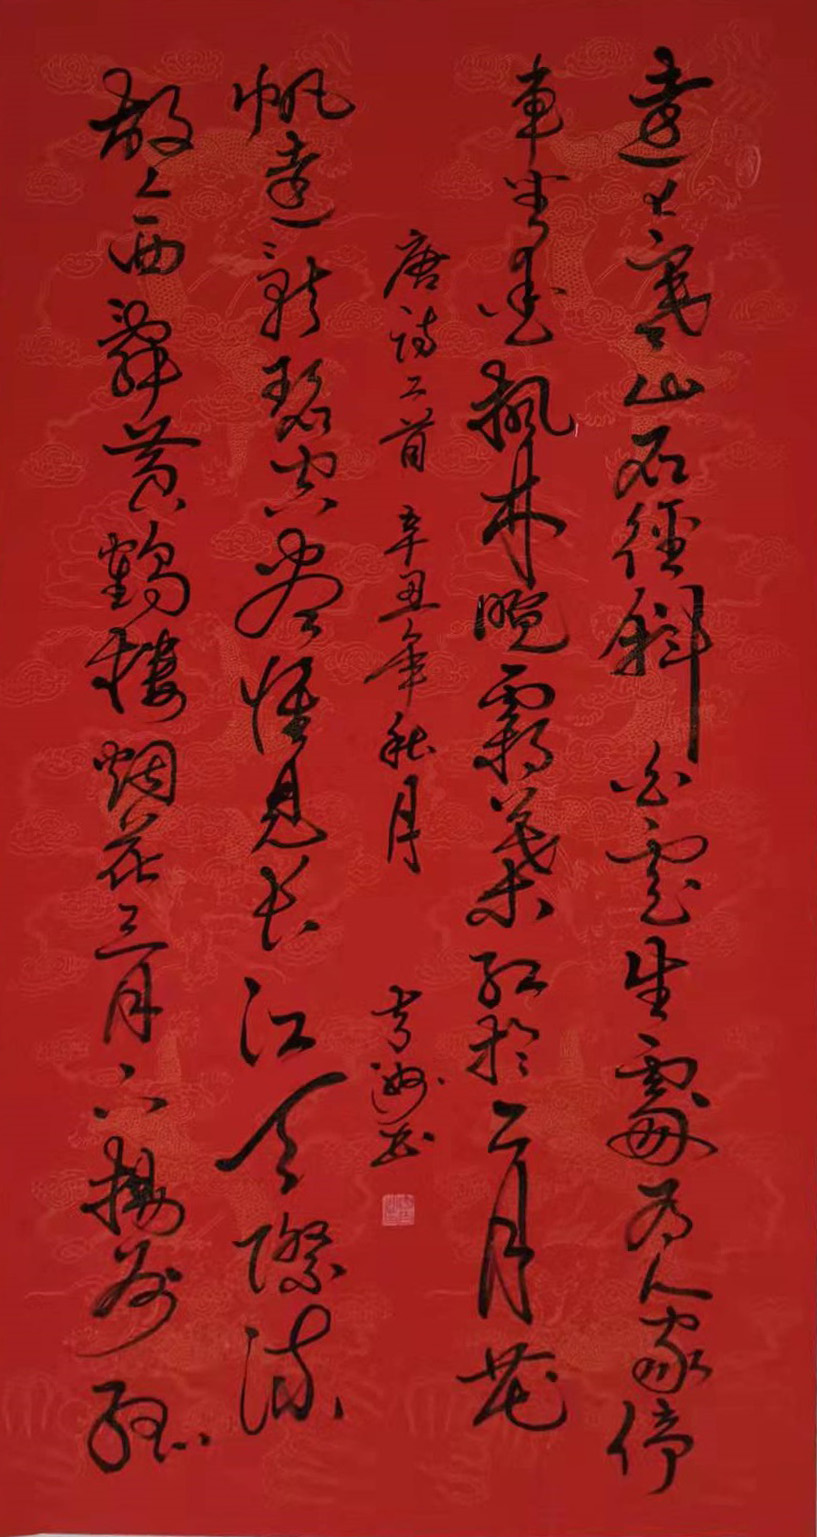 遠上寒山石徑斜白雲生處有人家停
車坐愛楓林晚霜葉紅於二月花
故人西辭黃鶴樓烟花三月下揚州孤
帆遠影碧空盡惟見長江天際流
唐詩二首 辛丑年秋月